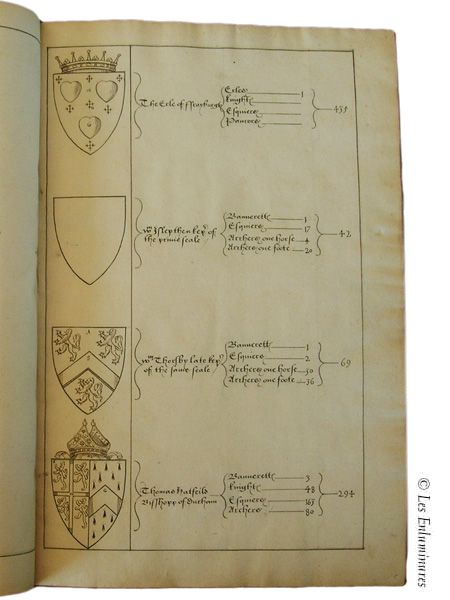 The Erle of
Erles 1
knights
Esquiers
435
Wm Islep then kep of
the privie seale
Banneretts 1
Esquiers 17
Archers one horse 4
Archers one foote 20
42
Wm Thorsby late kep
of the same seale
Banneretts 1
Esquiers 2
Archers one horse 30
Archers one foote 36
69
Thomas Hatfeild
Bisshopp of Durham
Banneretts 3
knights 48
Esquiers 163
Archers 80
294
© Les Enluminures